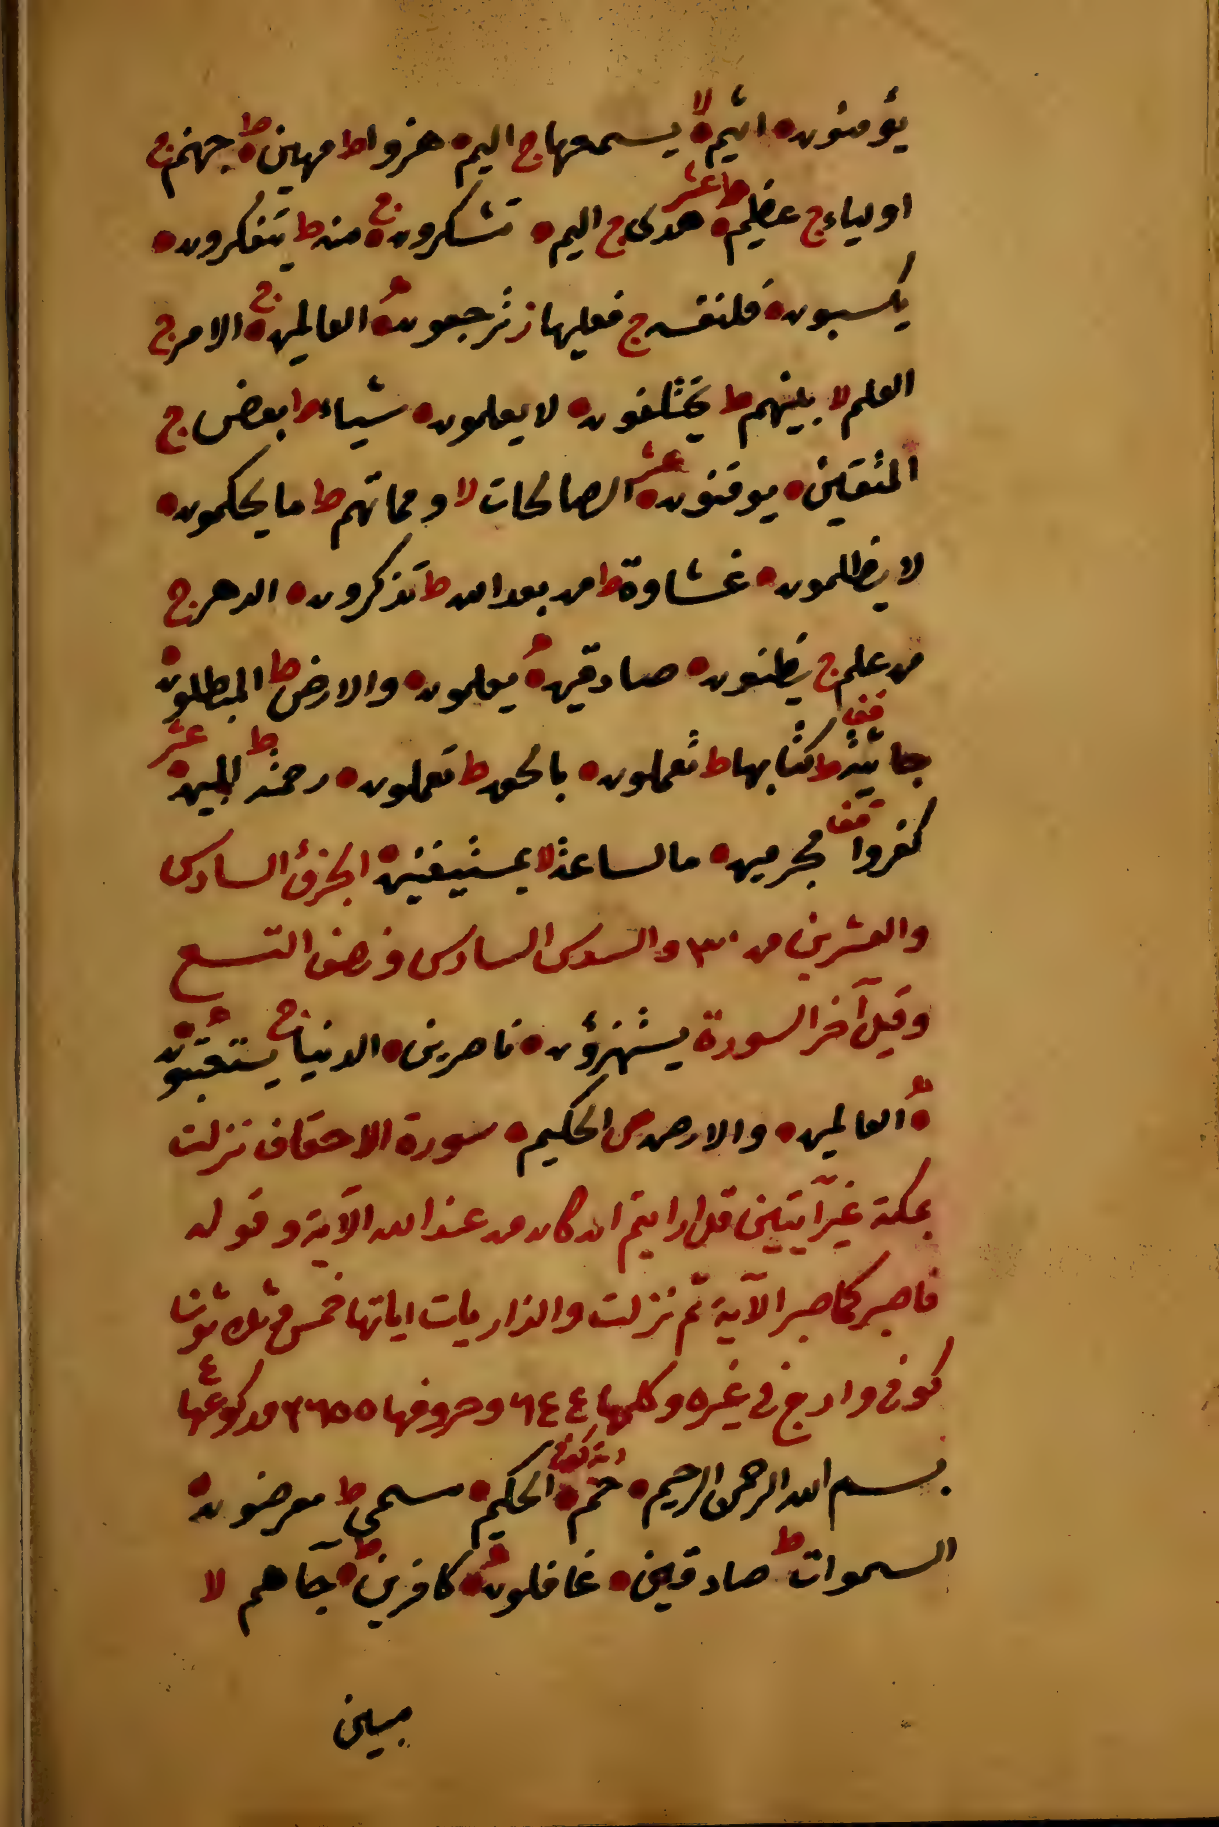 يؤمنون اثيم لا يسمعها ج اليم هزوا ط مهين ط جهنم ج
اولياء ج عظيم ط عشر هدى ج اليم تشكرون ج منه ط يتفكرون
يكسبون فلنفسه ج فعليها ز ترجعون العالمين ج الامر ج
العلم لا بينهم ط يختلفون لا يعلمون شياء ط بعض ج
المتقين يوقنون عشر الصالحات لا ومماتهم ط ما يحكمون
لا يظلمون غشاوة ط من بعد الله ط تذكرون الدهر ج
من علم ج يظنون صادقين يعلمون والارض ط المبطلون
جاثية قف ط كتابها ط تعملون بالحق ط تعملون رحمته ط المبين عشر
كفروا قف مجرمين ما الساعة لا بمستيقنين الجزؤ السادس
والعشرين من ٣٠ والسدس السادس ونصف التسع
وقيل آخر السورة يستهزؤن ناصرين الدنيا ج يستعتبون
العالمين والارض ص الحكيم سورة الاحقاف نزلت
بمكة غير آيتين قل ارايتم ان كان من عند الله الآية وقوله
فاصبر كما صبر الآية ثم نزلت والذاريات اياتها خمس وثلاثونا
كوفى واربع فى غيره وكلمها ٦٤٤ وحروفها ٢٦٥٥ وركوعها ٤
بسم الله الرحمن الرحيم حم اية كوفى الحكيم مسمى ط معرضون
السموات ط صادقين غافلون كافرين ط جآءهم لا
مبين